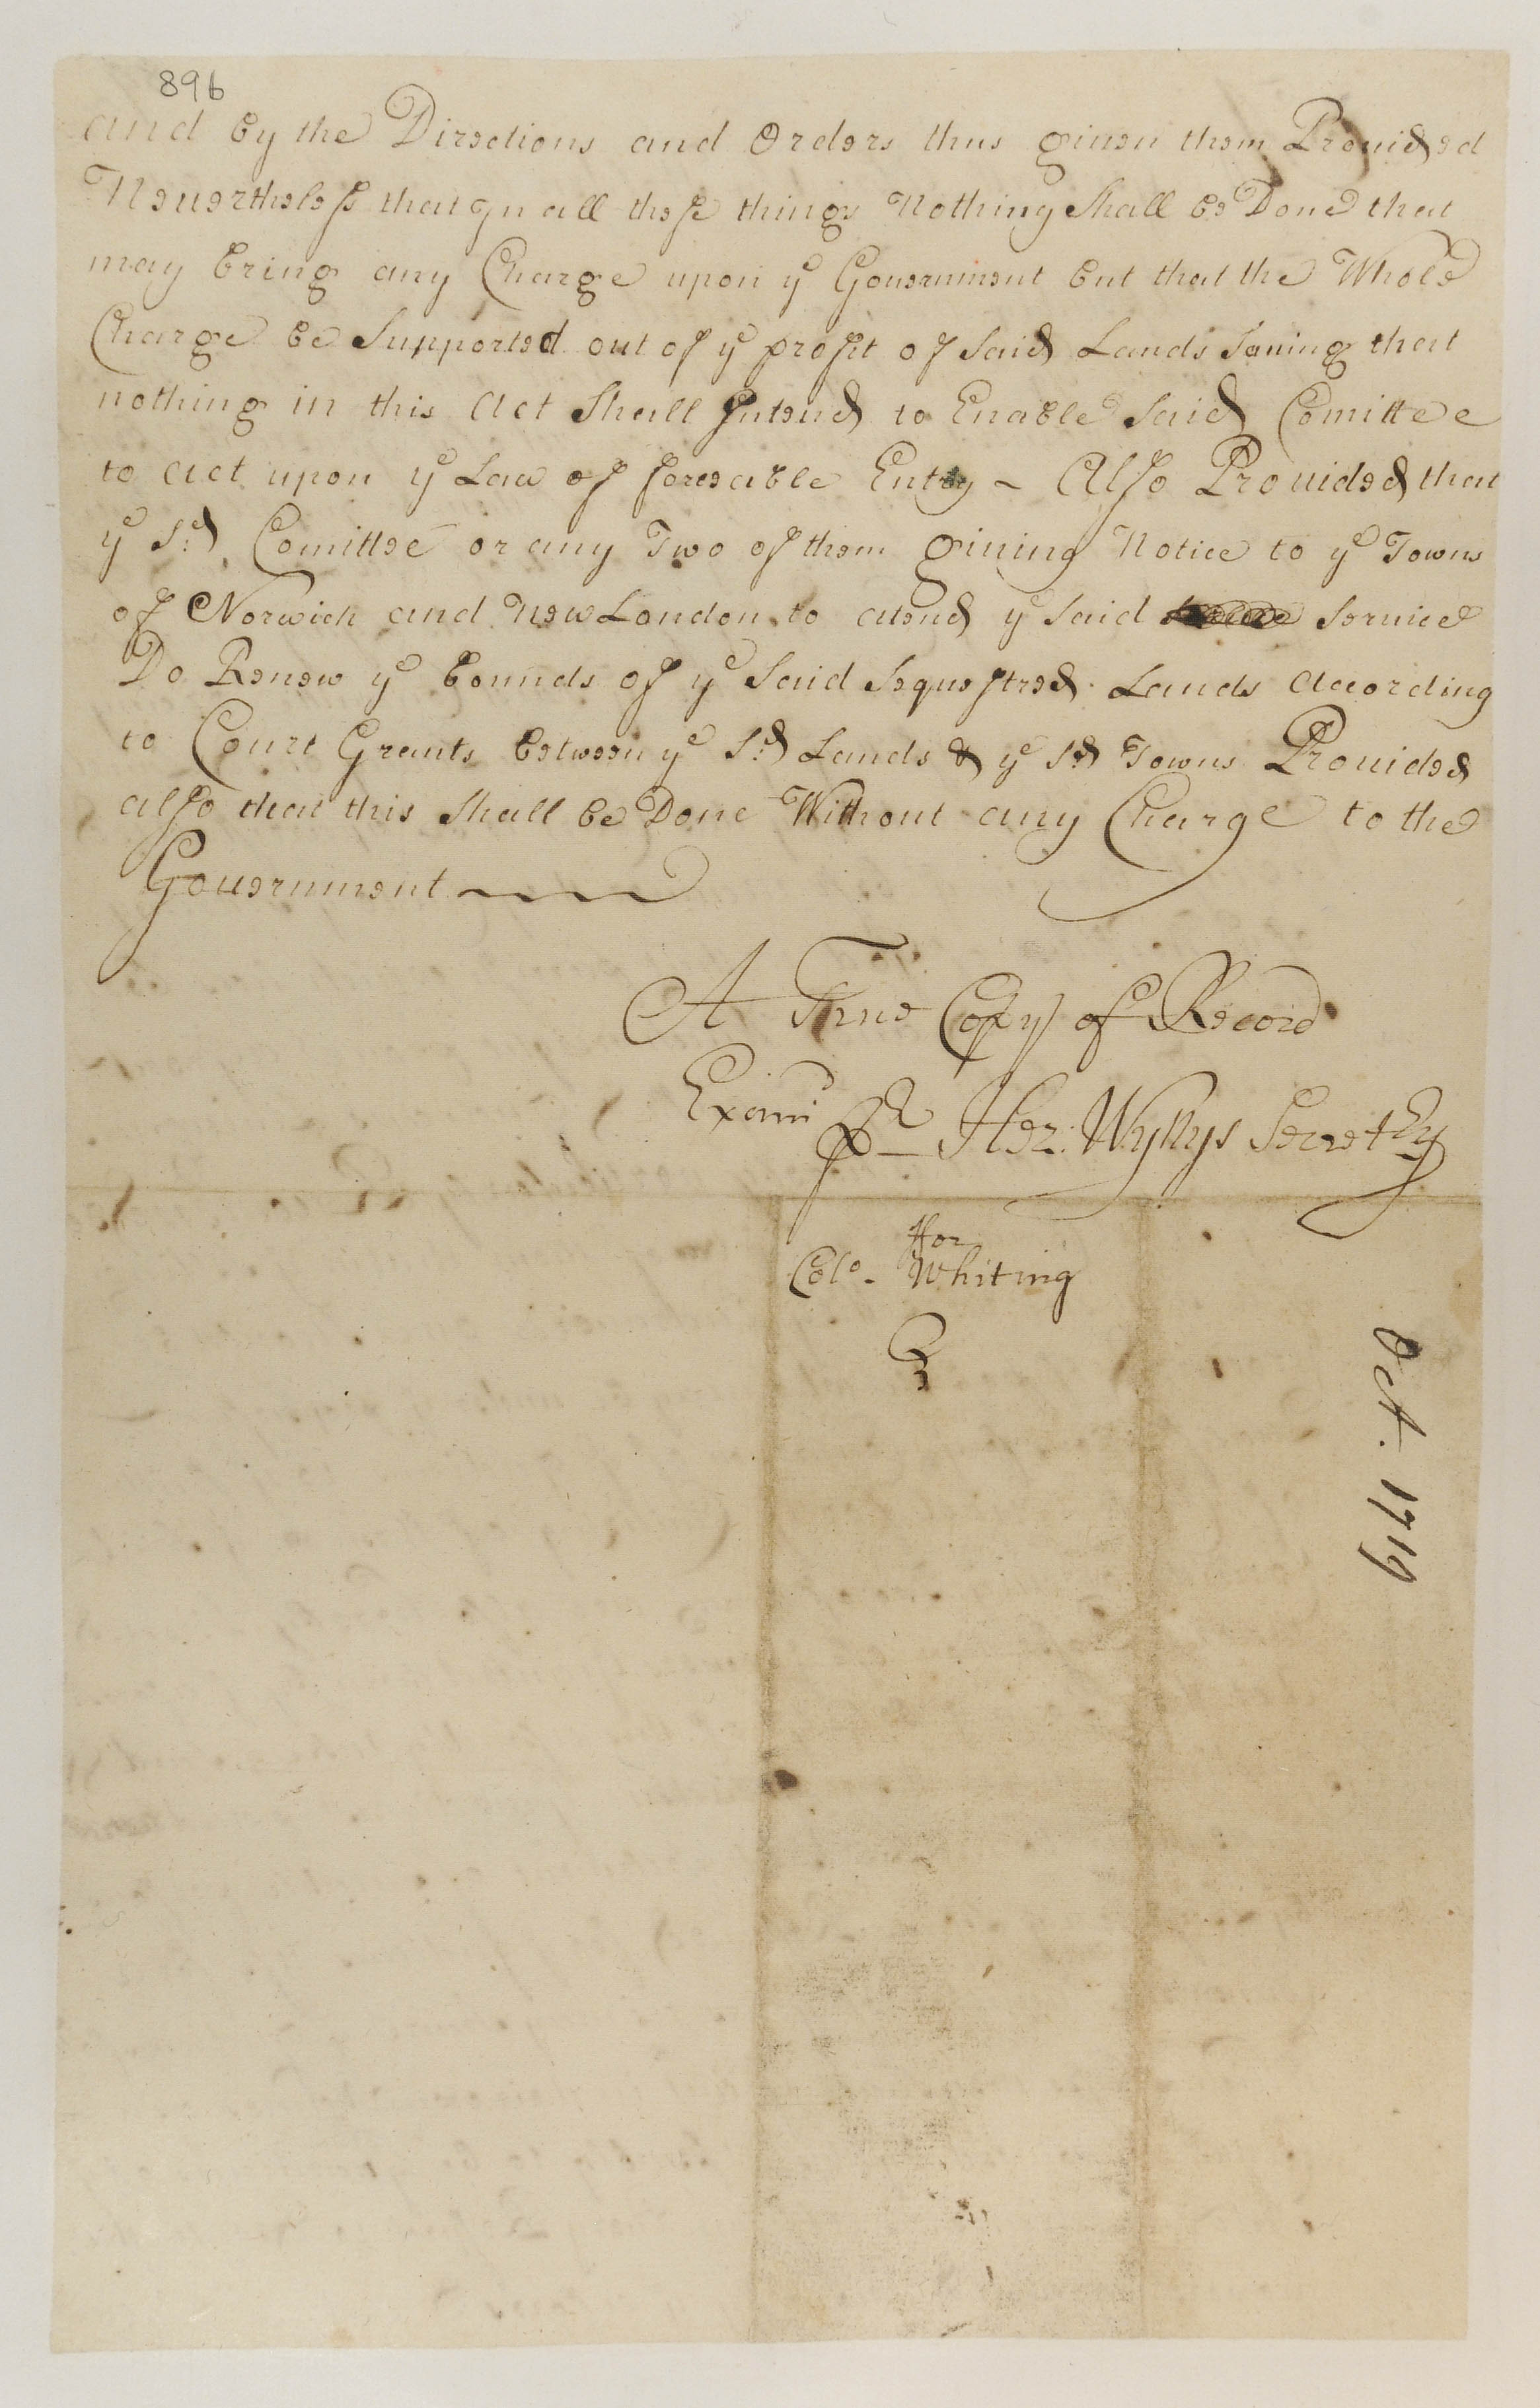 89b
and by the Directions and Orders thus giuen them Prouided
Neuertheless that In all these things Nothing Shall be Done that
may bring any Charge upon ye Gouernment but that the Whole
Charge be Supported out of ye profit of Said Lands Sauing that
nothing in this Act Shall Intend to Enable Said Comittee
to act upon ye Law of forceable Entry - Also Prouided that
ye Sd Comittee or any Two of them giuing Notice to ye Towns
of Norwich and New London to atend ye Said Seruice
Do Renew ye bounds of ye Said Sequestred Lands According
to Court Grants between ye Sd Lands & ye Sd Towns Prouided
also that this Shall be Done Without any Charge to the
Gouernment
A True Copy of Record
Exam pr Hez: Wyllys Secretry
ffor
Colo. Whiting
Oct. 1719